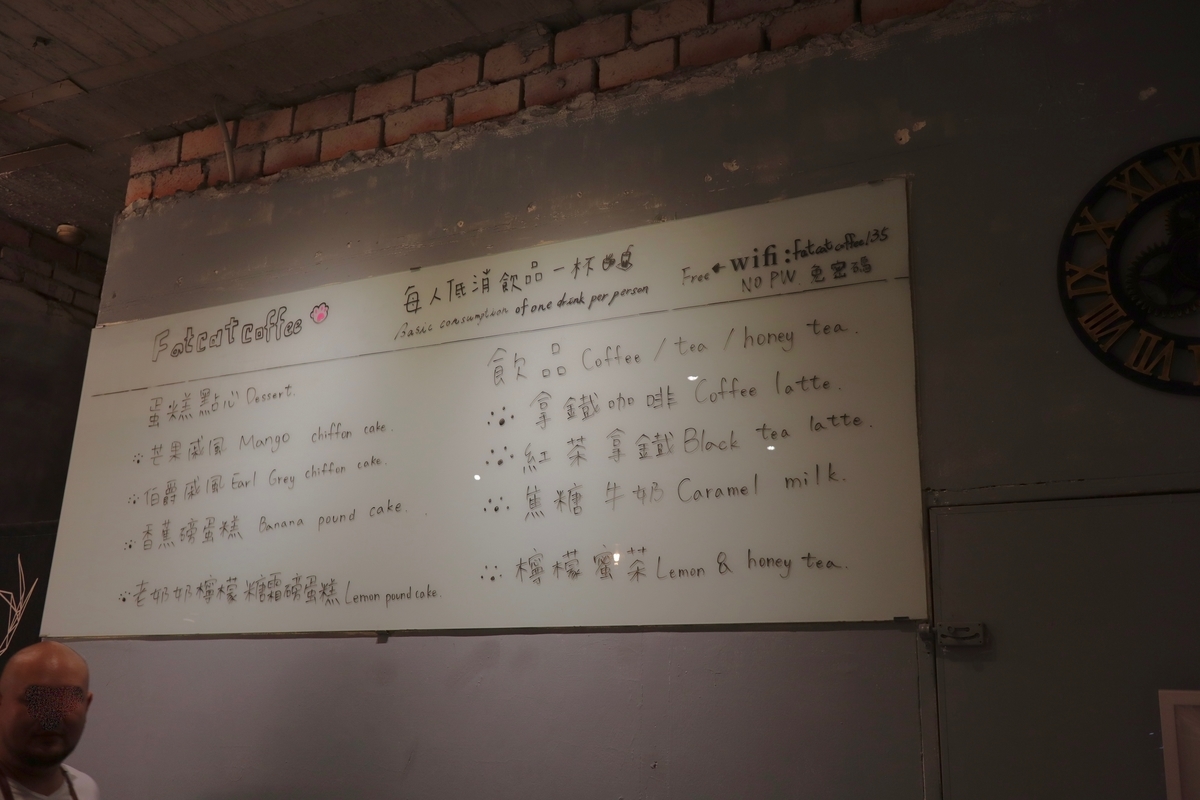 Fatcat coffee
每人低消飲品一杯
Basic consumption of one drink per person
Free wifi:fatcatcoffee135
NO PW. 免密碼
蛋糕點心 Dessert.
芒果戚風 Mango chiffon cake.
伯爵戚風 Earl Grey chiffon cake.
香蕉磅蛋糕 Banana pound cake.
老奶奶檸檬糖霜磅蛋糕 Lemon pound cake.
飲品 Coffee / tea / honey tea.
拿鐵咖啡 Coffee latte.
紅茶拿鐵 Black tea latte.
焦糖牛奶 Caramel milk.
檸檬蜜茶 Lemon & honey tea.
XII
XI
X
IX
VIII
VII